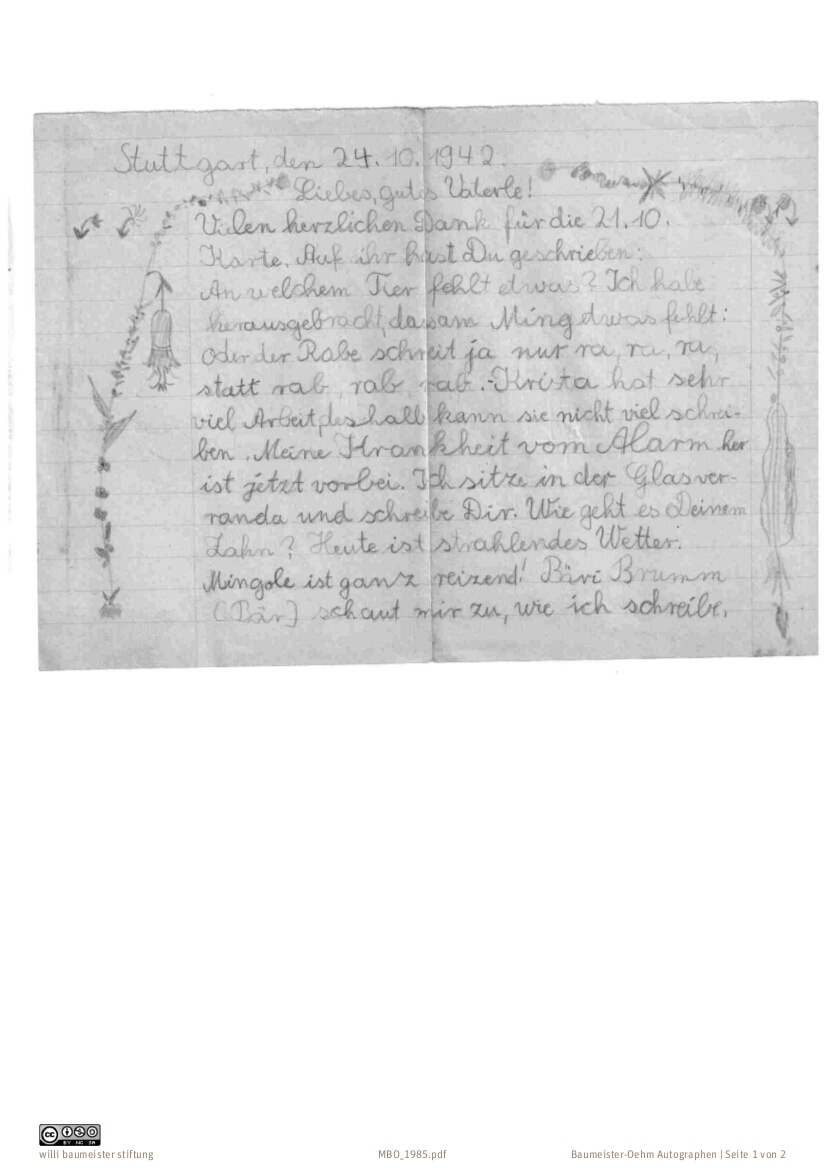 Stuttgart, den 24.10.1942.
Liebes, gutes Vaterle!
Vielen herzlichen Dank für die 21.10.
Karte. Auf ihr hast Du geschrieben:
An welchem Tier fehlt etwas? Ich habe
herausgebracht, das am Ming etwas fehlt:
Oder der Rabe schreit ja nur ra, ra, ra,
statt rab, rab, rab.-Krista hat sehr
viel Arbeit, deshalb kann sie nicht viel schrei-
ben. Meine Krankheit vom Alarm her
ist jetzt vorbei. Ich sitze in der Glasver-
randa und schreibe Dir. Wie geht es Deinem
Zahn? Heute ist strahlendes Wetter.
Mingole ist ganz reizend! Bäri Brumm
(Bär) schaut mir zu, wie ich schreibe.
cc BY NC SA
willi baumeister stiftung
MBO_1985.pdf
Baumeister-Oehm Autographen | Seite 1 von 2